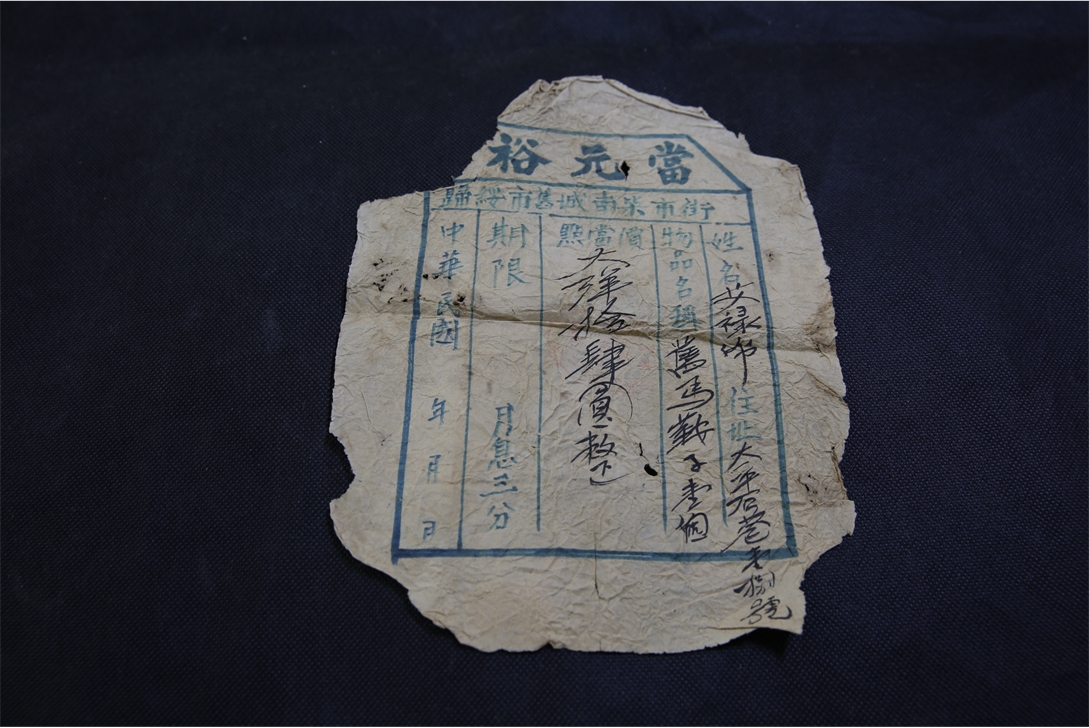 裕元當
歸綏市舊城南柴市街
姓名 住址大平石巷壹捌號
物品名稱 舊馬鞍子壹個
點當價 大洋拾肆圓整
期限 月息三分
中華民國 年 月 日